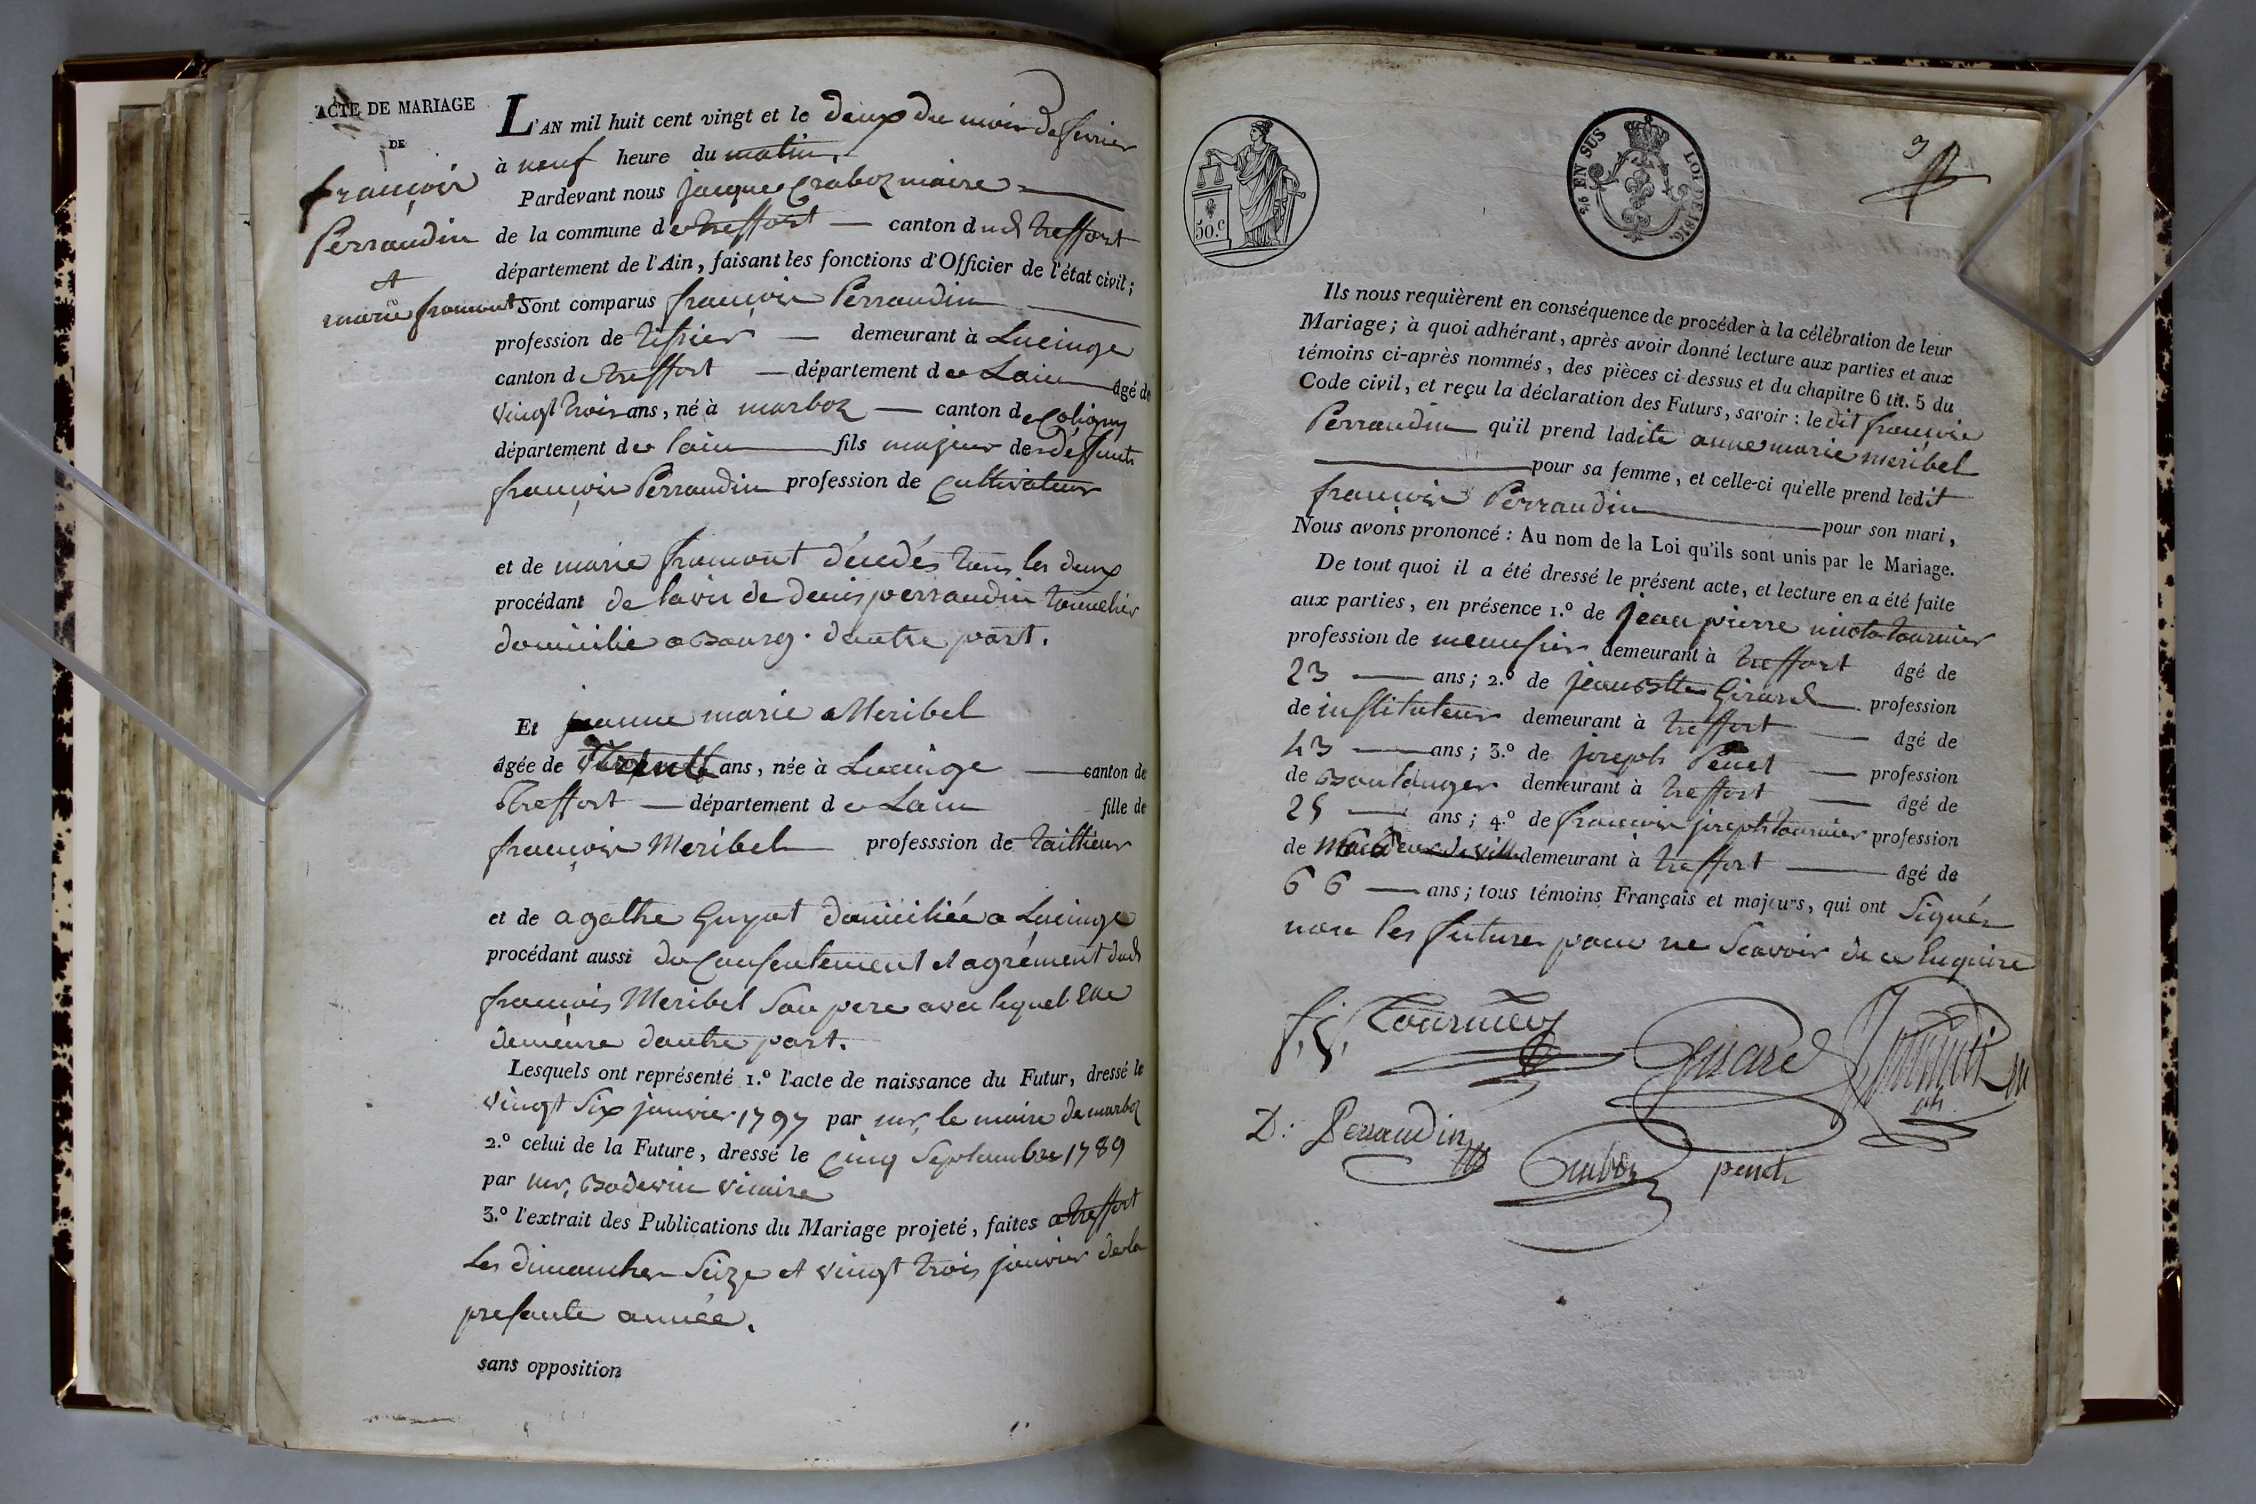 ACTE DE MARIAGE
DE
françois
Perraudin
et
marie framont
L'AN mil huit cent vingt et le deux du mois de fevrier
à neuf heure du matin.
Pardevant nous jacque Craboz maire
de la commune de treffort — canton dud treffort
département de l'Ain, faisant les fonctions d'Officier de l'état civil;
Sont comparus françois Perraudin
profession de tissier — demeurant à Lucinge
canton de treffort — département de Lain âgé de
vingt trois ans, né à marboz — canton de Coligny
département de lain fils majeur de deffunts
françois Perraudin profession de Cultivateur
et de marie framont décedés tous les deux
procédant de lavis de denis perraudin tonnelier
domicilié a Bourg. dautre part.
Et jeanne marie Meribel
âgée de trente ans, née à Lucinge — canton de
Treffort — département de Lain fille de
françois Meribel professsion de tailleur
et de agathe Guyot domiciliée a Lucinge
procédant aussi du Consentement et agrément dud
françois Meribel Son pere avec lequel Elle
demeure dautre part.
Lesquels ont représenté 1.º l'acte de naissance du Futur, dressé le
vingt Six janvier 1797 par mr, le maire de marboz
2.º celui de la Future, dressé le Cinq Septembre 1789
par mr, Bodewin vicaire
3.º l'extrait des Publications du Mariage projeté, faites a treffort
Les dimanches Seize et vingt trois janvier de la
presante année.
sans opposition
50.c
2/5 EN SUS
LOI DE 1816
3
Ils nous requièrent en conséquence de procéder à la célébration de leur
Mariage; à quoi adhérant, après avoir donné lecture aux parties et aux
témoins ci-après nommés, des pièces ci dessus et du chapitre 6 tit. 5 du
Code civil, et reçu la déclaration des Futurs, savoir: le dit françois
Perraudin qu'il prend ladite anne marie meribel
pour sa femme, et celle-ci qu'elle prend ledit
françois Perraudin pour son mari,
Nous avons prononcé: Au nom de la Loi qu'ils sont unis par le Mariage.
De tout quoi il a été dressé le présent acte, et lecture en a été faite
aux parties, en présence 1.º de jean pierre nicola tournier
profession de menusier demeurant à treffort âgé de
23 — ans; 2.º de jean Btte Girard profession
de instituteur demeurant à treffort — âgé de
43 — ans; 3.º de joseph Penet — profession
de Boulanger demeurant à treffort — âgé de
25 — ans; 4.º de francois joseph tournier profession
de demeurant à treffort — âgé de
66 — ans; tous témoins Français et majeurs, qui ont Signés
non les futures pour ne Scavoir de ce Enquire
f. j. Tournier
Girard
D: Perraudin
Craboz
penet